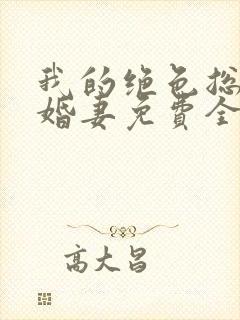 我的绝色总
婚妻免費全
高大昌